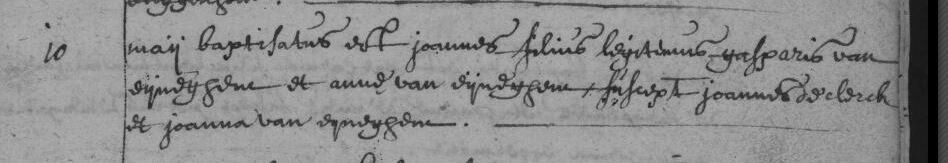 10 maij baptisatus est joannes filius legitimus gasparis van
eijneghem et anne van eijneghem, suscept joannes declerck
et joanna van eijneghem.